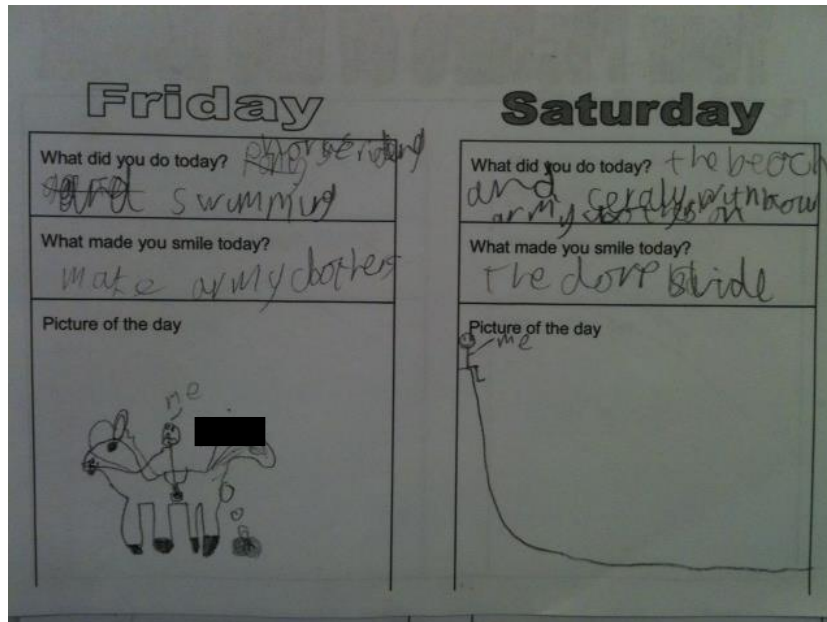 Friday
What did you do today? horse riding
and swimming
What made you smile today?
make army clothers
Picture of the day
me
Saturday
What did you do today? the beach
and
army on
What made you smile today?
the slide
Picture of the day
me